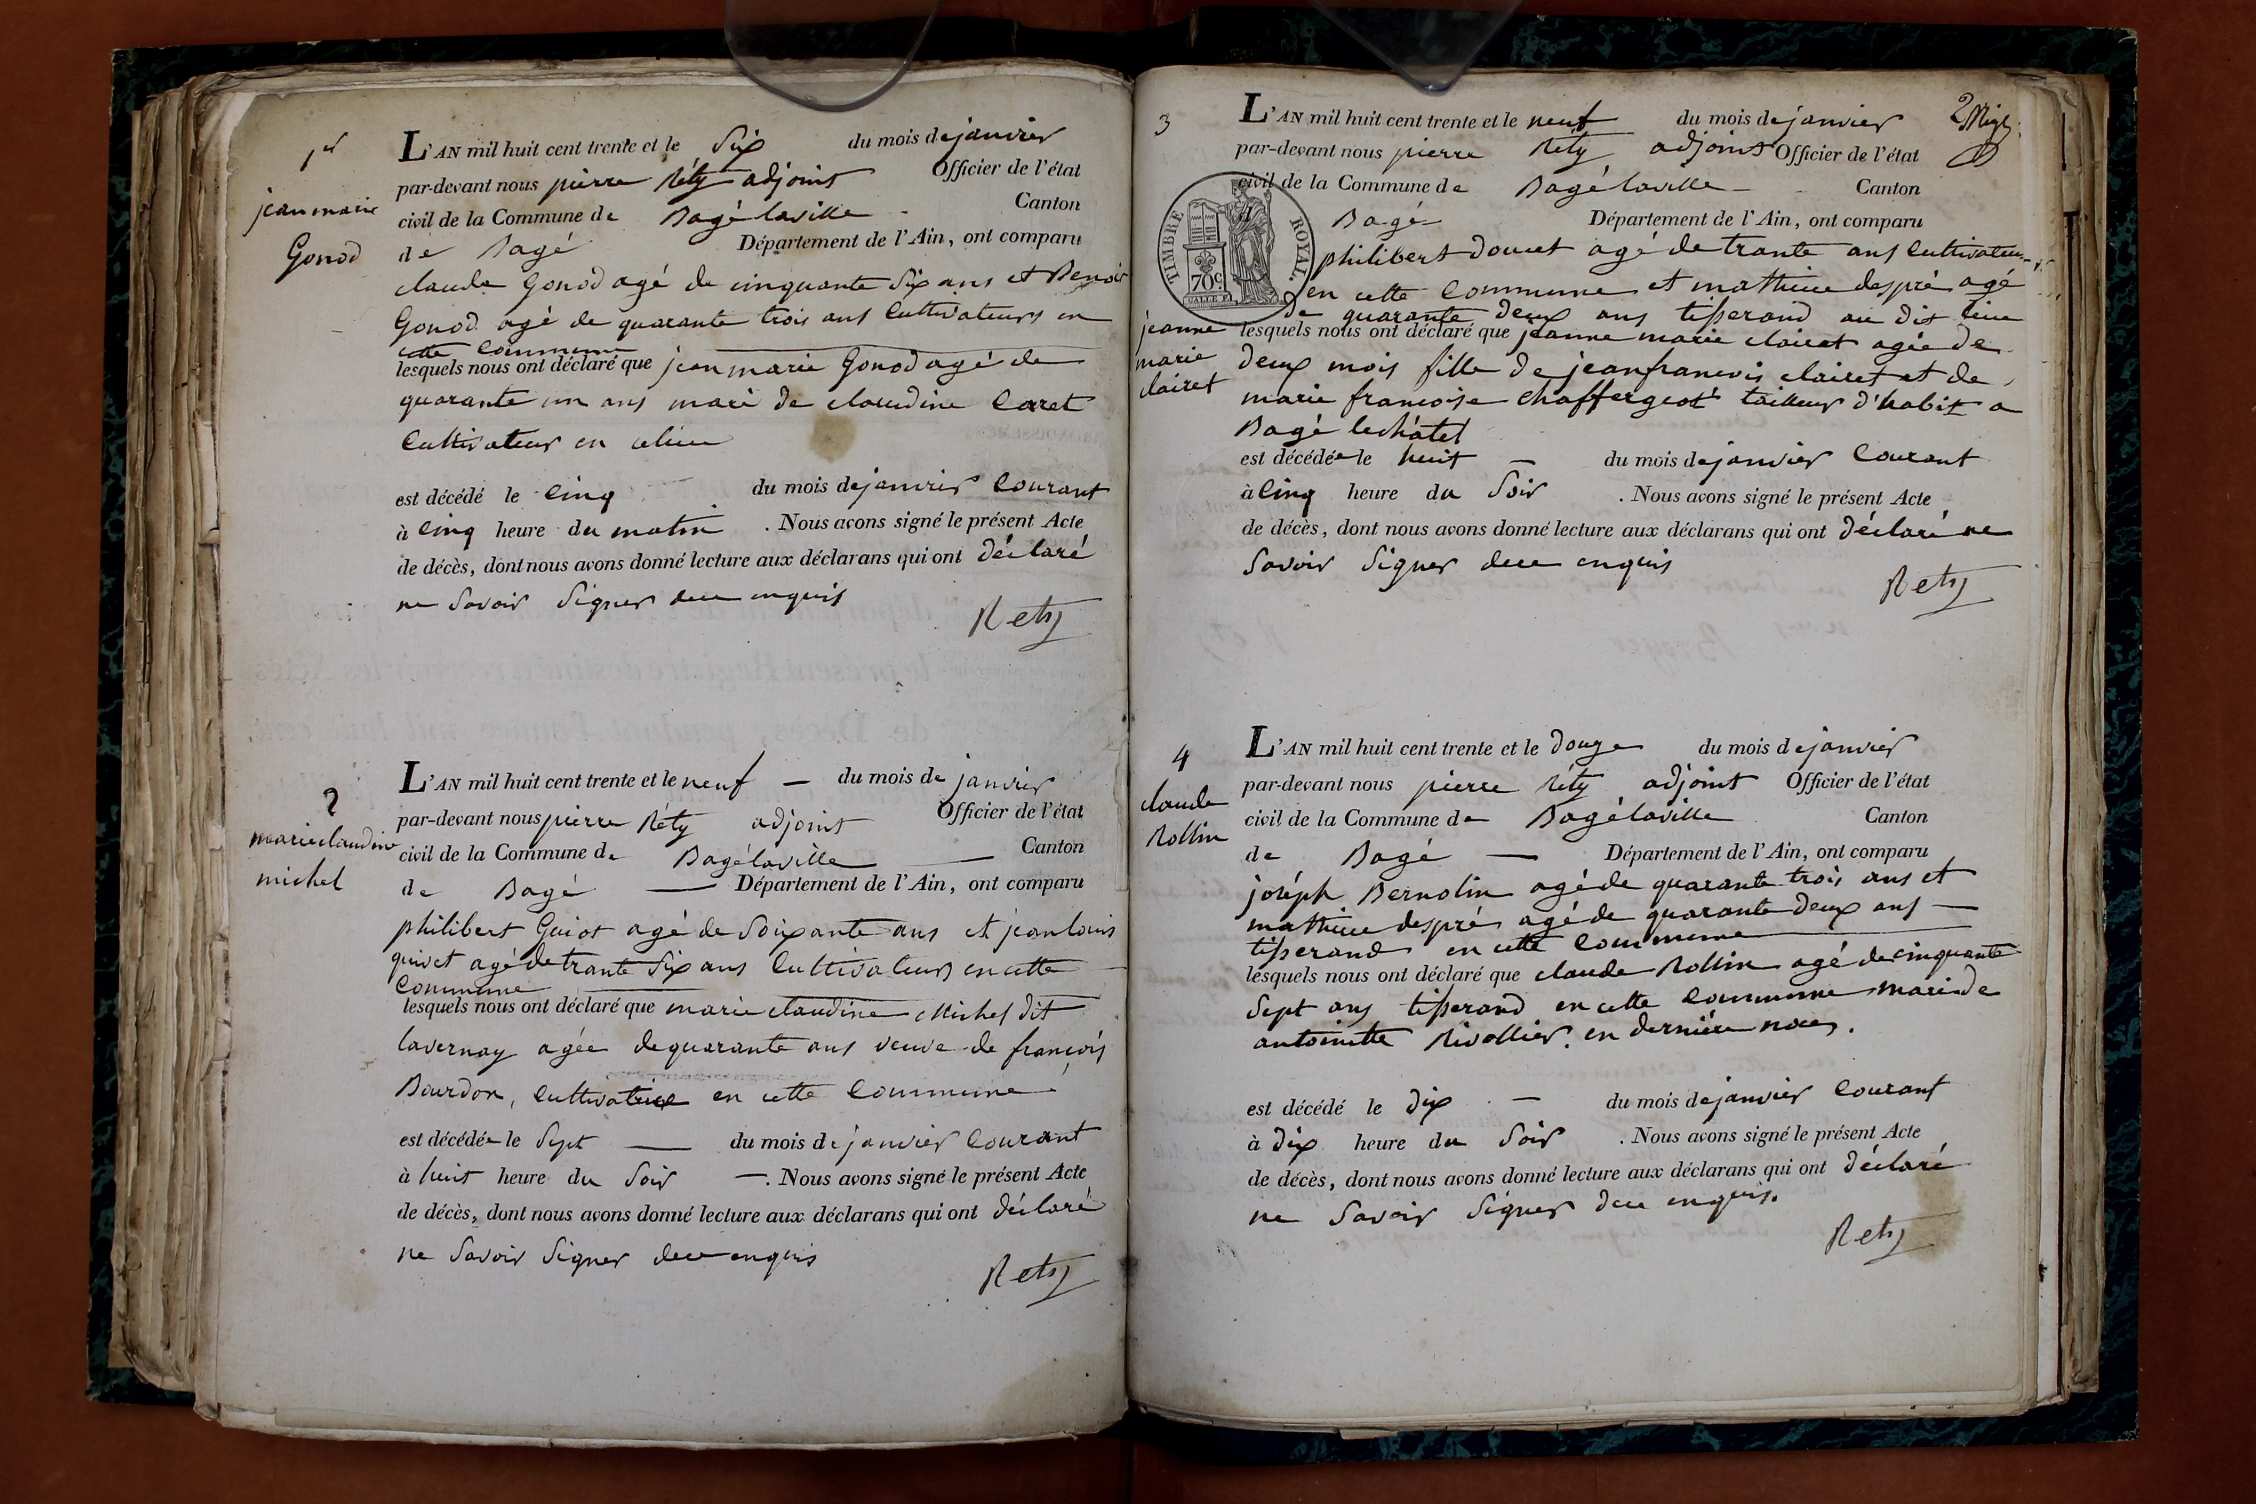 1er
jean marie
Gonod
L'AN mil huit cent trente et le Six du mois de janvier
par-devant nous pierre Réty adjoint Officier de l'état
civil de la Commune de Bagélaville Canton
de Bagé Département de l'Ain, ont comparu
claude Gonod agé de cinquante Six ans et Benoit
Gonod agé de quarante trois ans Cultivateurs en
cette commune
lesquels nous ont déclaré que jean marie Gonod agé de
quarante un ans mari de claudine Caret
Cultivateur en celieu
est décédé le cinq du mois de janvier Courant
à cinq heure du matin . Nous avons signé le présent Acte
de décès, dont nous avons donné lecture aux déclarans qui ont déclaré
ne Savoir Signer dece enquis
Rety
2
marieclaudine
michel
L'AN mil huit cent trente et le neuf — du mois de janvier
par-devant nous pierre Réty adjoint Officier de l'état
civil de la Commune de Bagélaville — Canton
de Bagé — Département de l'Ain, ont comparu
philibert Guiot agé de Soixante ans et jeanlouis
quivet agé de trante Six ans Cultivateurs encette
Commune
lesquels nous ont déclaré que marieclaudine Michel dit
lavernay agée dequarante ans veuve de françois
Bourdon, Cultivatrice en cette Commune
est décédée le Sept — du mois de janvier Courant
à huit heure du Soir —. Nous avons signé le présent Acte
de décès, dont nous avons donné lecture aux déclarans qui ont déclaré
ne Savoir Signer dece enquis
Rety
3
jeanne
marie
clairet
L'AN mil huit cent trente et le neuf du mois de janvier
par-devant nous pierre Réty adjoint Officier de l'état
civil de la Commune de Bagélaville — Canton
Bagé Département de l'Ain, ont comparu
TIMBRE ROYAL.
70c.
philibert doucet agé de trante ans Cultivateur
en cette Commune et mathieu despré agé
de quarante deux ans tisserand au dit lieu
lesquels nous ont déclaré que jeanne marie clairet agée de
deux mois fille de jeanfrancois clairet et de
marie francoise Chaffergeot tailleur d'habit a
Bagé lechâtel
est décédée le huit — du mois de janvier Courant
à cinq heure du Soir . Nous avons signé le présent Acte
de décès, dont nous avons donné lecture aux déclarans qui ont déclaré ne
Savoir Signer dece enquis
Rety
4
claude
Rollin
L'AN mil huit cent trente et le douze du mois de janvier
par-devant nous pierre Réty adjoint Officier de l'état
civil de la Commune de Bagélaville Canton
de Bagé — Département de l'Ain, ont comparu
joséph Bernolin agé de quarante trois ans et
mathieu despré agé de quarante deux ans —
tisserand en cette Commune
lesquels nous ont déclaré que claude Rollin agé de cinquante
Sept ans tisserand en cette Commune mari de
antoinette Rivollier. en dernière noces.
est décédé le dix — du mois de janvier Courant
à dix heure du Soir . Nous avons signé le présent Acte
de décès, dont nous avons donné lecture aux déclarans qui ont déclaré
ne Savoir Signer dece enquis.
Rety